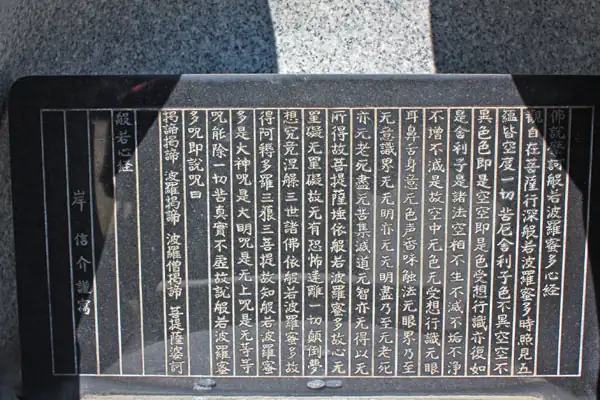 佛説摩訶般若波羅蜜多心経
観自在菩薩行深般若波羅蜜多時照見五
蘊皆空度一切苦厄舎利子色不異空空不
異色色即是空空即是色受想行識亦復如
是舎利子是諸法空相不生不滅不垢不浄
不増不減是故空中无色无受想行識无眼
耳鼻舌身意无色声香味触法无眼界乃至
无意識界无无明亦无无明盡乃至无老死
亦无老死盡无苦集滅道无智亦无得以无
所得故菩提薩埵依般若波羅蜜多故心无
罣礙无罣礙故无有恐怖遠離一切顛倒夢
想究竟涅槃三世諸佛依般若波羅蜜多故
得阿耨多羅三藐三菩提故知般若波羅蜜
多是大神呪是大明呪是无上呪是无等等
呪能除一切苦真実不虚故説般若波羅蜜
多呪即説呪曰
揭諦揭諦 波羅揭諦 波羅僧揭諦 菩提薩婆訶
般若心経
岸信介謹寫